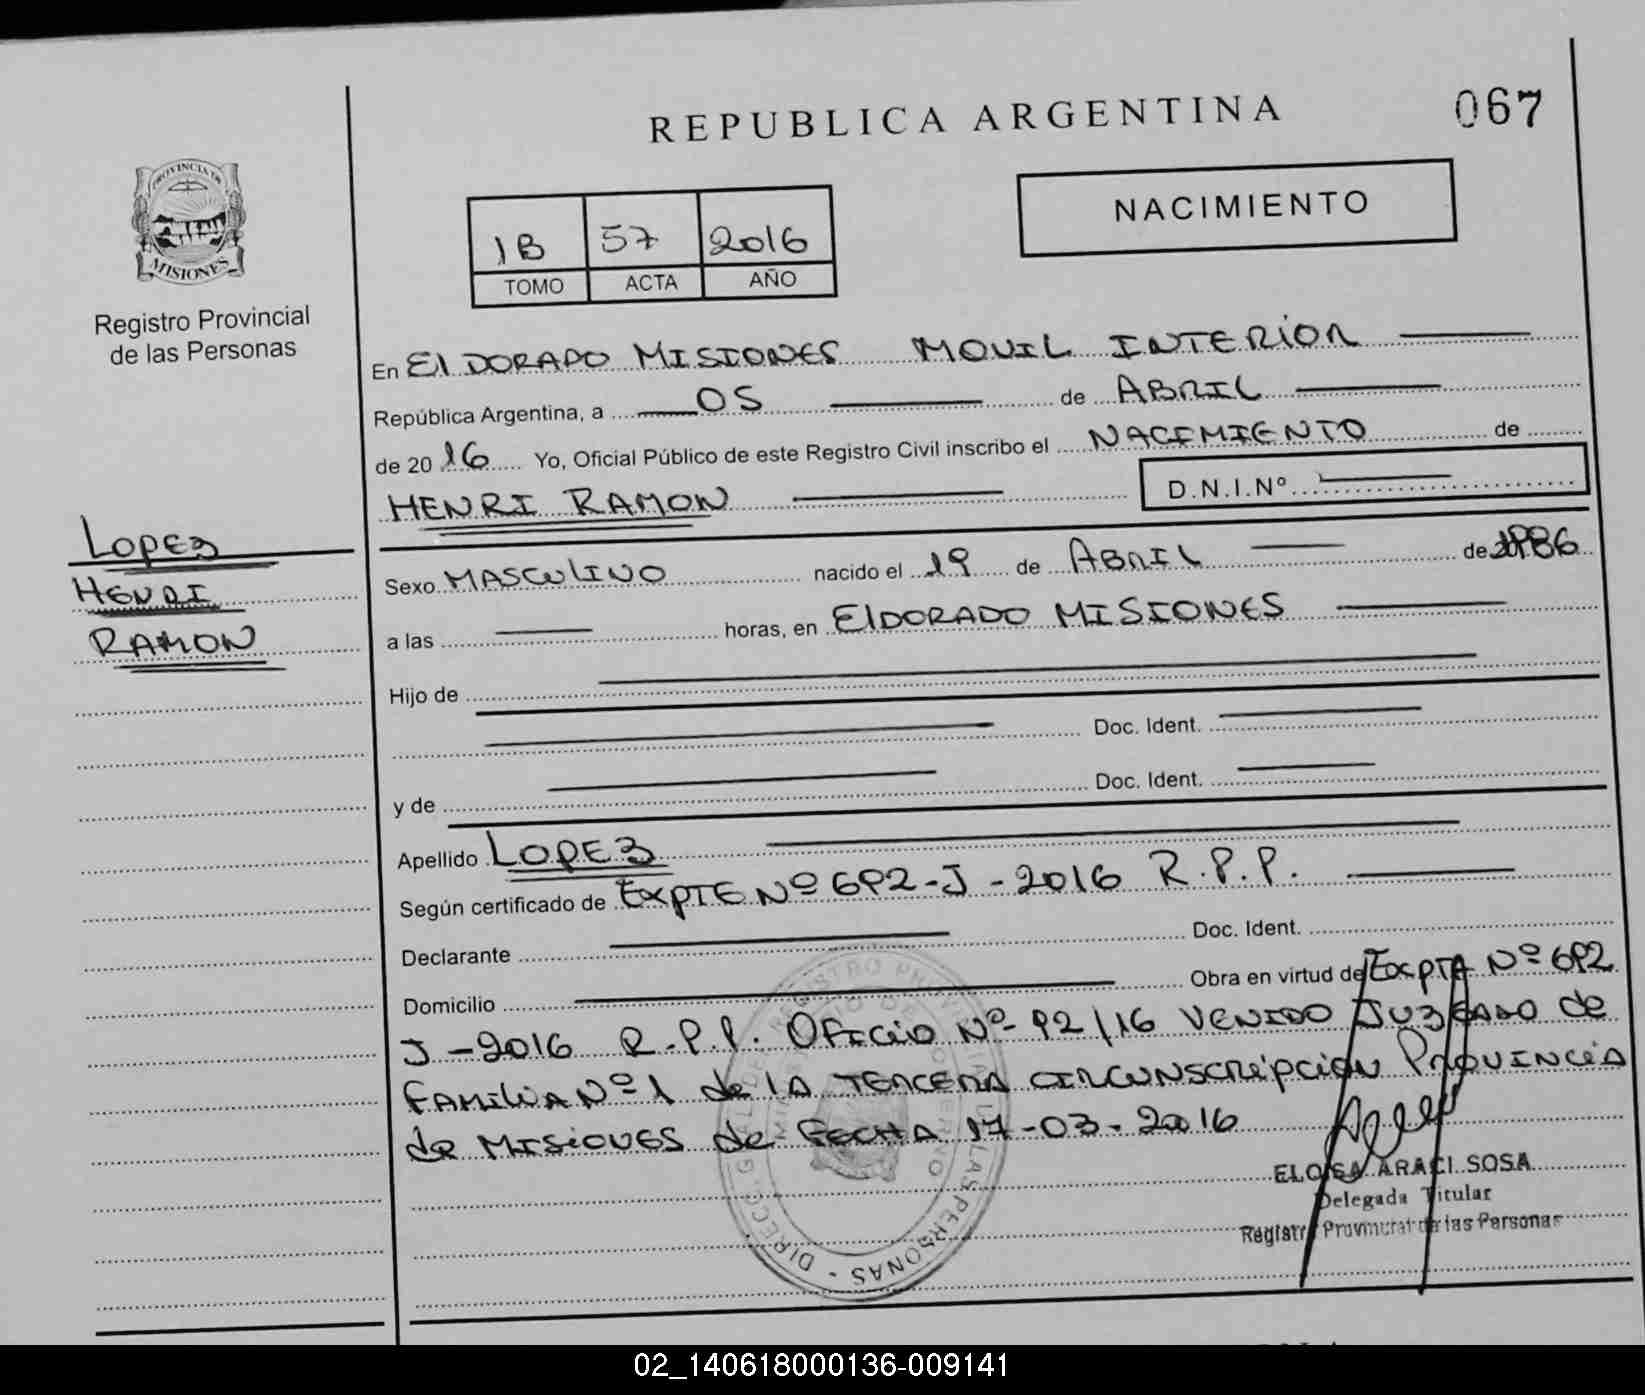 REPUBLICA ARGENTINA
067
PROVINCIA DE
MISIONES
Registro Provincial
de las Personas
NACIMIENTO
1B 57 2016
TOMO ACTA AÑO
En ElDORADO MISIONES MOVIL INTERIOR
República Argentina, a 05 de ABRIL
de 2016 Yo, Oficial Público de este Registro Civil inscribo el NACIMIENTO de
HENRI RAMON D.N.I.Nº
LOPEZ
HENRI
RAMON
Sexo MASCULINO nacido el 19 de ABRIL de 1986
a las horas, en ElDORADO MISIONES
Hijo de
Doc. Ident.
y de Doc. Ident.
Apellido LOPEZ
Según certificado de EXPTE Nº 692-J-2016 R.P.P.
Declarante Doc. Ident.
Domicilio Obra en virtud de EXCPTA Nº 692
J-2016 R.P.P. OFICIO Nº 92/16 VENIDO JUZGADO de
FAMILIA Nº 1 de lA TERCERA CIRCUNSCRIPCIÓN PROVINCIA
de MISIONES de FECHA 17-03-2016
ELOISA ARACI SOSA
Delegada Titular
Registro Provincial de las Personas
02_140618000136-009141